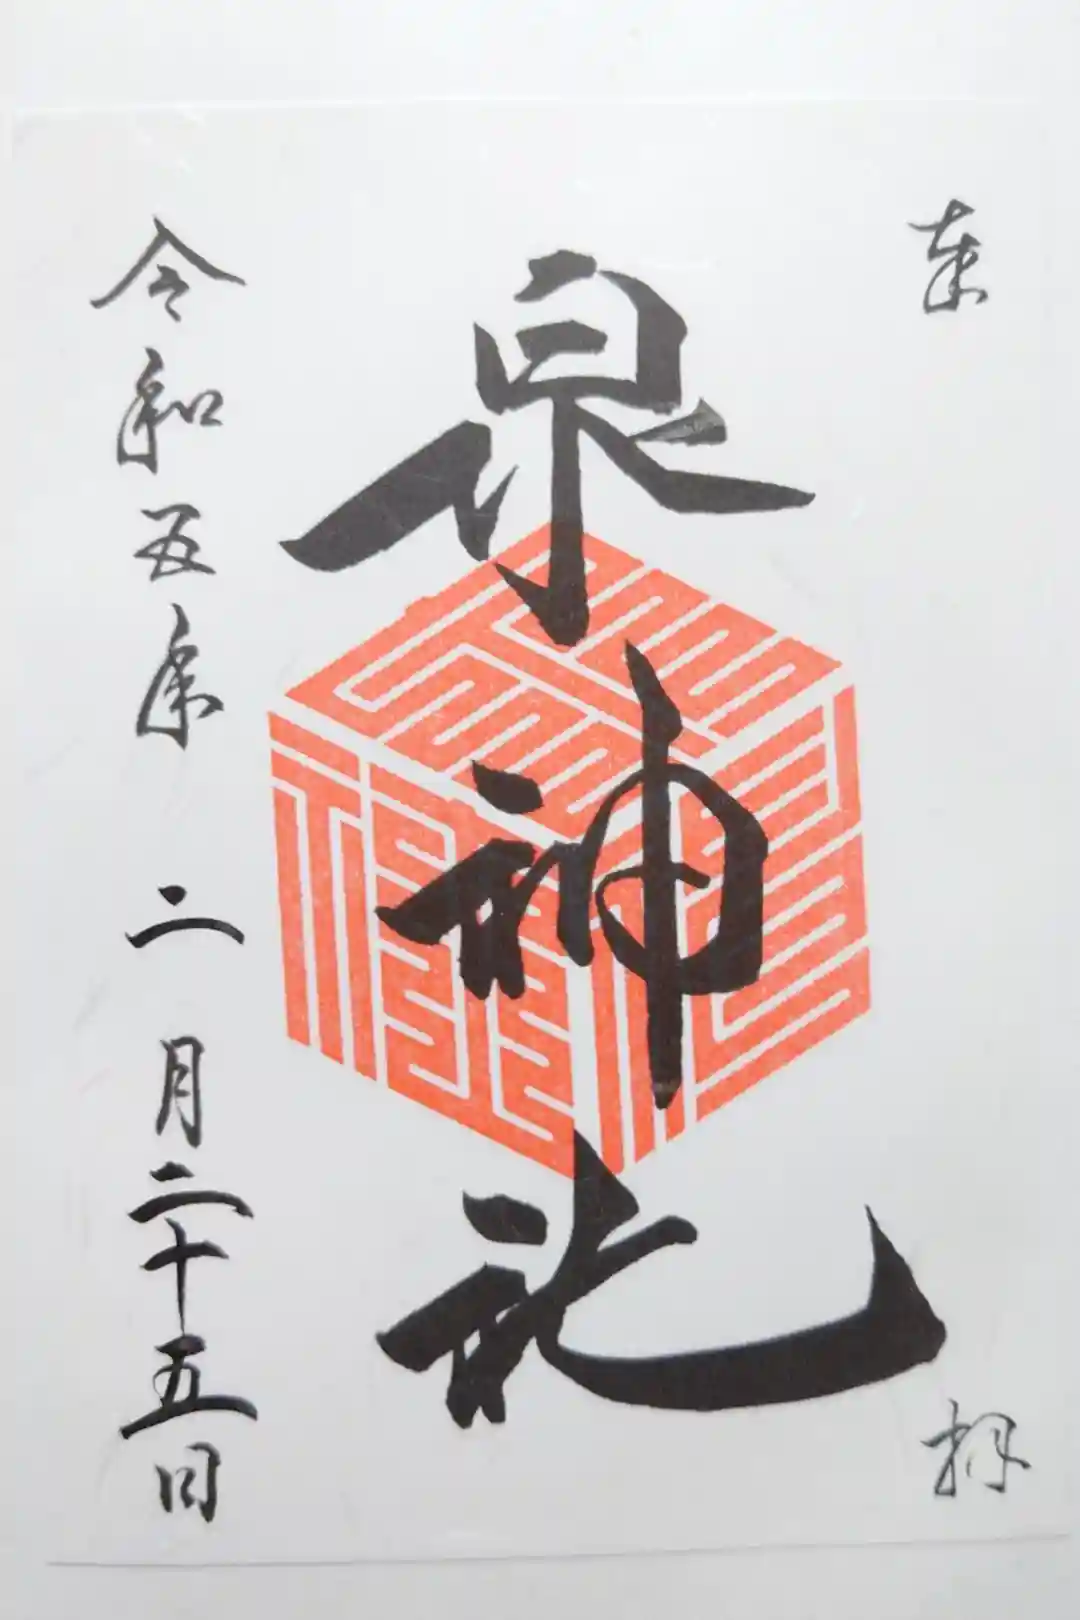 奉
拝
泉神社
令和五年二月二十五日